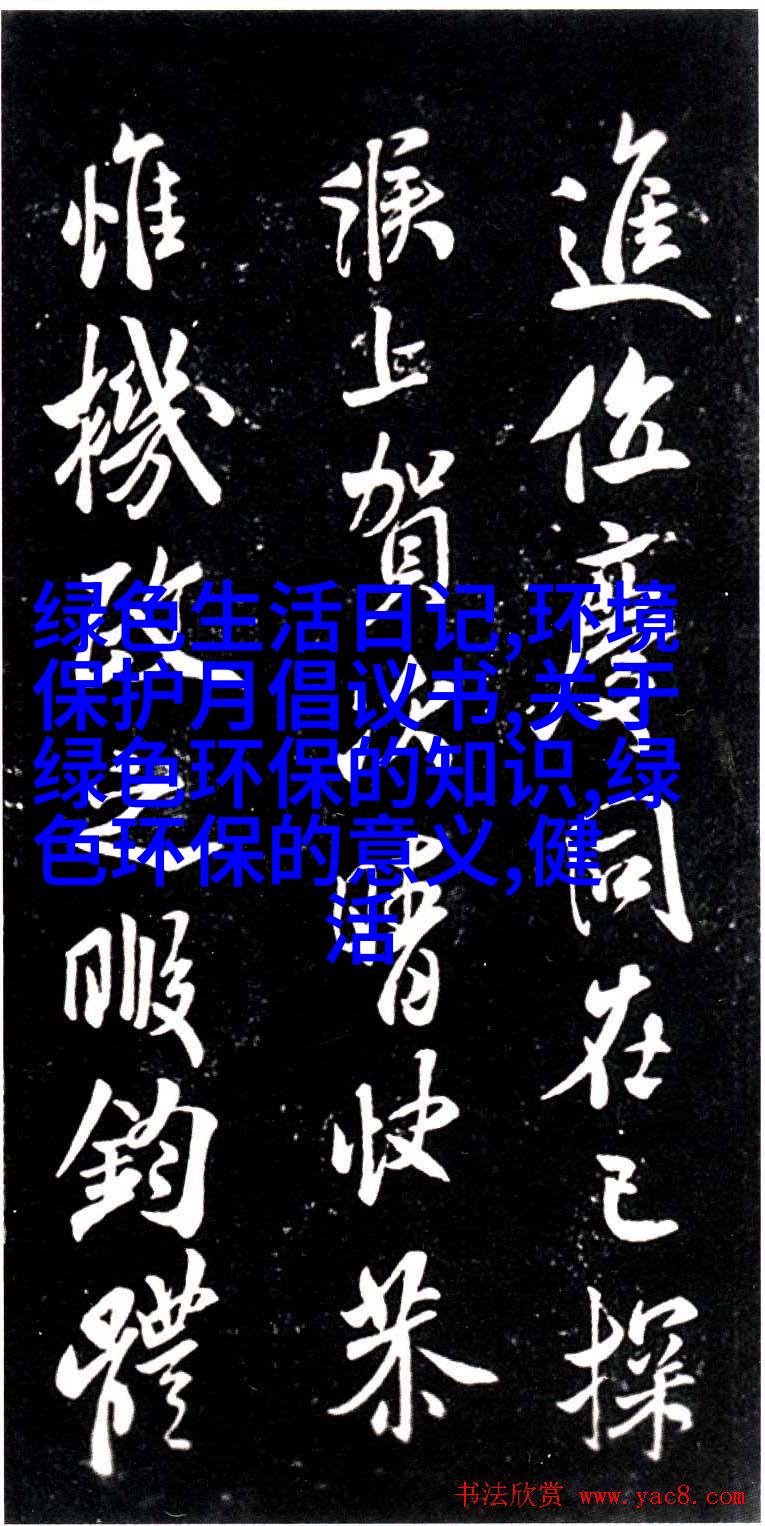 進位慶同在已探
候上賀次署快恭
惟機政之暇鈞體
绿色生活日记,环境
保护月倡议书,关于
绿色环保的知识,绿
色环保的意义,健
活
书法欣赏 www.yac8.com